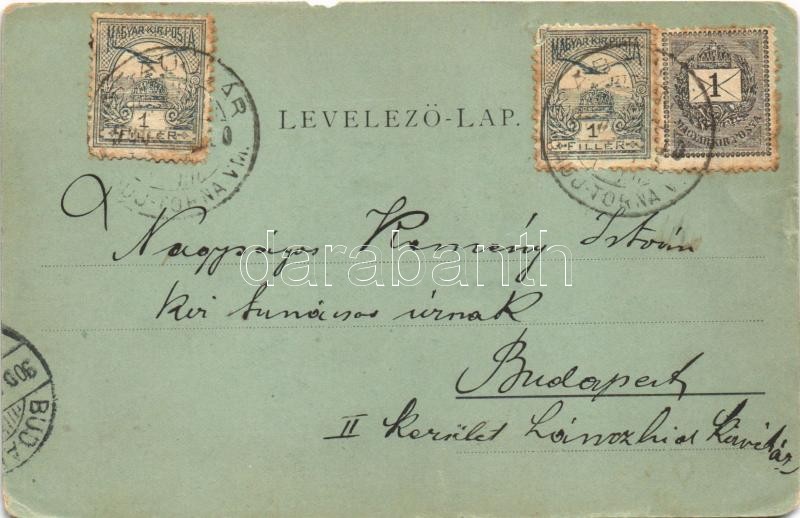 MAGYAR·KIR·POSTA
1
FILLÉR
MAGYAR·KIR·POSTA
1
FILLÉR
1
MAGYAR KIR. POSTA
LEVELEZŐ-LAP.
UJ-TORNA VM.
UJ-TORNA V
Nagyságos Kemény István
kir tanácsos úrnak
Budapest
II kerület Lánczhid
darabanth
900
BUDA